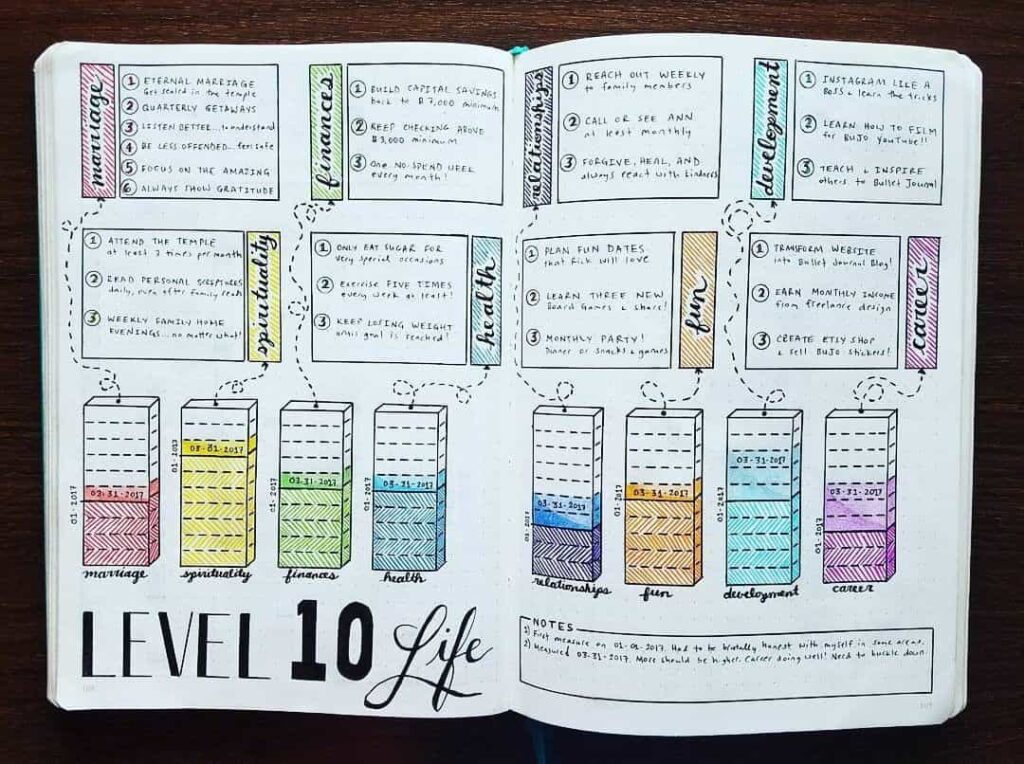 marriage
1 ETERNAL MARRIAGE
Get sealed in the temple
2 QUARTERLY GETAWAYS
3 LISTEN BETTER... to understand
4 BE LESS OFFENDED... feel safe
5 FOCUS ON THE AMAZING
6 ALWAYS SHOW GRATITUDE
finances
1 BUILD CAPITAL SAVINGS
back to $7,000 minimum
2 KEEP CHECKING ABOVE
$3,000 minimum
3 One NO-SPEND WEEK
every month!
relationships
1 REACH OUT WEEKLY
to family members
2 CALL OR SEE ANN
at least monthly
3 FORGIVE, HEAL, AND
always react with kindness
development
1 INSTAGRAM LIKE A
BOSS & learn the tricks
2 LEARN HOW TO FILM
for BUJO YouTube!!
3 TEACH & INSPIRE
others to Bullet Journal
1 ATTEND THE TEMPLE
at least 3 times per month
2 READ PERSONAL SCRIPTURES
daily, even after family reads
3 WEEKLY FAMILY HOME
EVENINGS... no matter what!
spirituality
1 ONLY EAT SUGAR FOR
very special occasions
2 Exercise FIVE TIMES
every week at least!
3 KEEP LOSING WEIGHT
until goal is reached!
health
1 PLAN FUN DATES
that Rick will love
2 LEARN THREE NEW
Board Games & share!
3 MONTHLY PARTY!
Dinner or snacks & games
fun
1 TRANSFORM WEBSITE
into Bullet Journal Blog!
2 EARN MONTHLY INCOME
from freelance design
3 CREATE ETSY SHOP
& sell BUJO stickers!
career
01-2017
03-31-2017
marriage
01-2017
03-31-2017
spirituality
03-31-2017
finances
01-2017
03-31-2017
health
03-31-2017
relationships
01-2017
03-31-2017
fun
03-31-2017
development
01-2017
03-31-2017
career
LEVEL 10 Life
NOTES
1) First measure on 01-01-2017. Had to be brutally honest with myself in some areas.
2) Measured 03-31-2017. More should be higher. Career doing well! Need to buckle down.